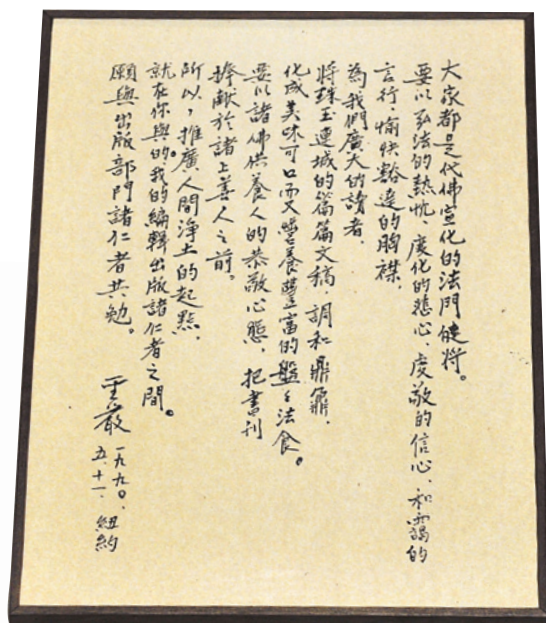 大家都是代佛宣化的法門健將。
要以弘法的熱忱、度化的悲心、虔敬的信心、和靄的
言行、愉快豁達的胸襟、
為我們廣大的讀者、
將珠玉連城的篇篇文稿、調和鼎鼐、
化成美味可口而又營養豐富的盤盤法食。
要以諸佛供養人的恭敬心態、把書刊
捧獻於諸上善人之前。
所以，推廣人間淨土的起點、
就在你與的、我的編輯出版諸仁者之間。
願與出版部門諸仁者共勉。
聖嚴
一九九〇、
五、十一、紐約